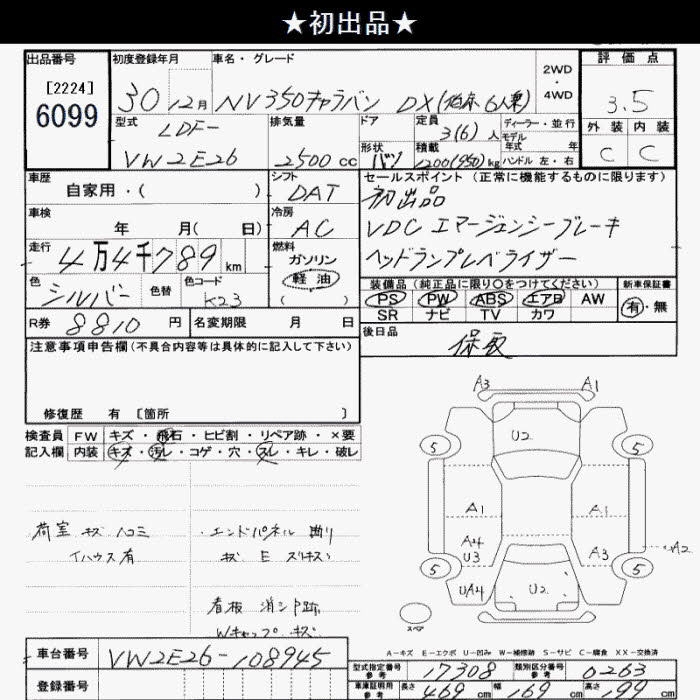 ★初出品★
出品番号
[2224]
6099
初度登録年月
30 12月
車名・グレード
NV350キャラバン DX
2WD
・
4WD
評価点
3.5
外装 内装
C C
型式
LDF-
VW2E26
排気量
2500 cc
ドア
形状
バン
定員
3(6)人
積載
1200(950)kg
ディーラー・並行
モデル
年式 年
ハンドル 左・右
車歴
自家用・( )
シフト
DAT
セールスポイント(正常に機能するものに限ります)
初出品
VDC エマージェンシーブレーキ
ヘッドランプレベライザー
車検
年 月( 日)
冷房
AC
走行
4万4千789 km
燃料
ガソリン
軽油
( )
色
シルバー
色替
色コード
K23
装備品(純正品に限り○をつけてください)
PS PW ABS エアB AW
SR ナビ TV カワ
新車保証書
有・無
R券
8810 円
名変期限 月 日
後日品
保取
注意事項申告欄(不具合内容等は具体的に記入して下さい)
修復歴 有 [箇所 ]
検査員
記入欄
FW キズ・飛石・ヒビ割・リペア跡・×要
内装 キズ・汚レ・コゲ・穴・スレ・キレ・破レ
荷室 キズ ハコミ
イハウス有
・エンドパネル 曲り
キズ E
看板 消シ跡
Wキャップ キズ
A3 A1
U2
5 5
A1 A1
A4
U3
A3
A2
5 5
UA4
U2
スペア
A-キズ E-エクボ U-凹み W-補修跡 S-サビ C-腐食 XX-交換済
車台番号
VW2E26-108945
登録番号
型式指定番号
参考
17308
類別区分番号
参考
0263
車庫証明用
参考
長さ 469 cm 幅 169 cm 高さ 199 cm